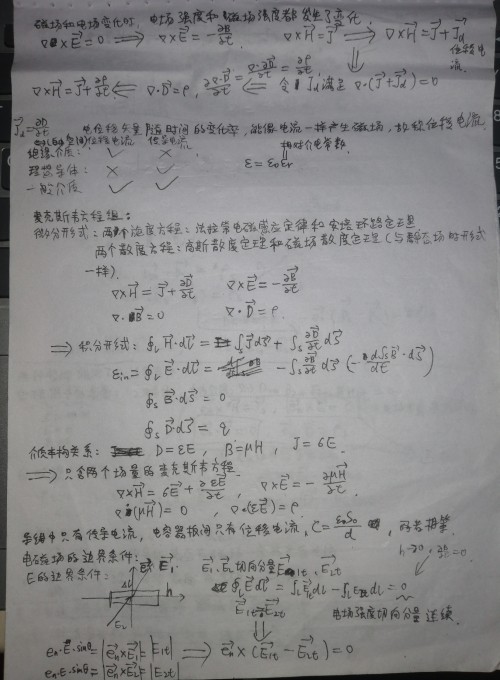 磁场和电场变化时,电场强度和磁场强度都发生了变化.
∇×E⃗=0 ⟹ ∇×E⃗=-∂B⃗/∂t. ∇×H⃗=J⃗ ⟹ ∇×H⃗=J⃗+J⃗d
位移电流.
∇×H⃗=J⃗+∂D⃗/∂t ⟸ ∇·D⃗=ρ, ∂∇·D⃗/∂t=∇·∂D⃗/∂t=∂ρ/∂t ⟸ 令 J⃗d满足 ∇·(J⃗+J⃗d)=0
J⃗d=∂D⃗/∂t 电位移矢量随时间的变化率,能像电流一样产生磁场,故称位移电流.
位移电流 传导电流 相对介电常数
绝缘介质: ✓ × ε=ε0εr
理想导体: × ✓
一般介质 ✓ ✓
麦克斯韦方程组:
微分形式:两个旋度方程:法拉第电磁感应定律和安培环路定理
两个散度方程:高斯散度定理和磁场散度定理(与静态场时形式
一样)
∇×H⃗=J⃗+∂D⃗/∂t ∇×E⃗=-∂B⃗/∂t
∇·B⃗=0 ∇·D⃗=ρ.
⟹ 积分形式: ∮L H⃗·dL⃗ = ∫s J⃗dS⃗ + ∫s ∂D⃗/∂t dS⃗
εin=∮L E⃗·dL⃗ = -∫s ∂B⃗/∂t dS⃗ (-d∫s B⃗·dS⃗/dt)
∮s B⃗·dS⃗ = 0
∮s D⃗·dS⃗ = q
介质本构关系: D=εE, B=μH, J=σE.
⟹ 只含两个场量的麦克斯韦方程
∇×H⃗=σE⃗+∂εE⃗/∂t, ∇×E⃗=-∂μH⃗/∂t.
∇·(μH⃗)=0, ∇·(εE⃗)=ρ.
导线中只有传导电流,电容器板间只有位移电流, C=ε0S0/d, 两者相等.
电磁场的边界条件: h→0,
E的边界条件: E⃗1. E⃗1、E⃗2切向分量E1t、E2t
Δl h ∮L E⃗dL⃗=∫L E1tdL-∫L E2tdL=0
E2 E⃗1t=E⃗2t 电场强度切向分量连续.
en·E·sinθ=|e⃗n×E⃗1|=|E1t| ⟹ e⃗n×(E⃗1t-E⃗2t)=0
en·E·sinθ=|e⃗n×E⃗2|=|E2t|